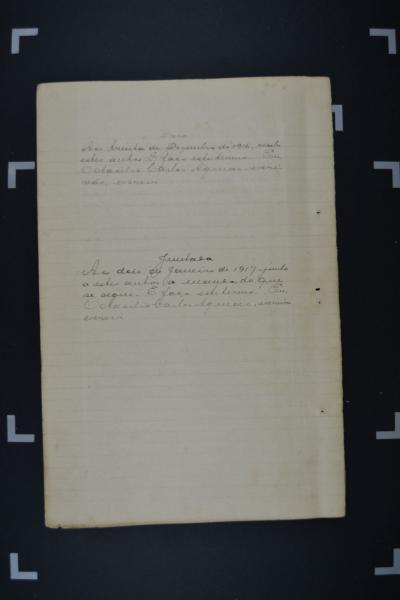 Data
Aos trinta de Dezembro de 1916, recebi
estes autos. E faço este termo. Eu,
Carlos escri
vão, escrevi
Juntada
Aos dois de Janeiro de 1917, junto
a estes autos, o mandado que
se segue. E faço este termo. Eu,
Carlos escrivão
escrevi